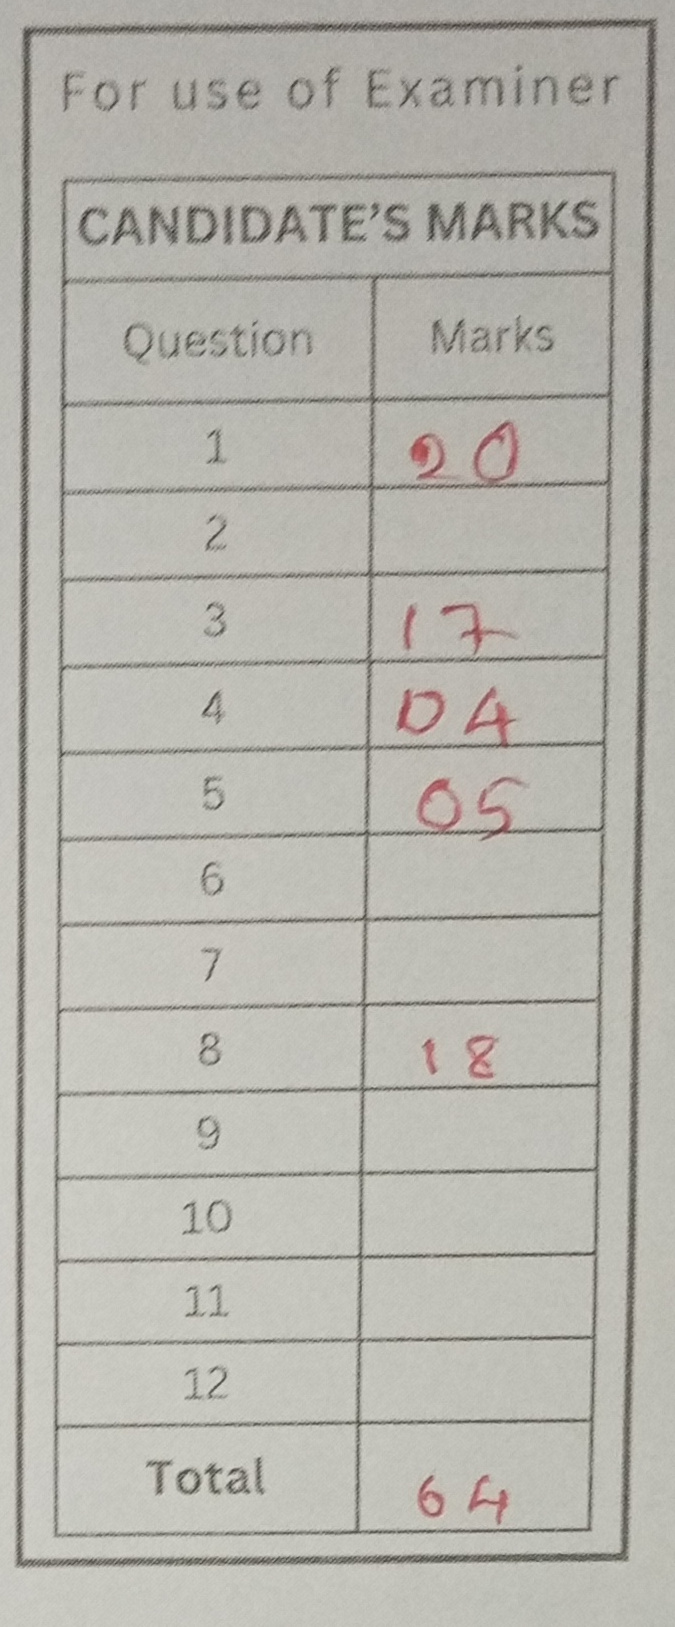 For use of Examiner
CANDIDATE'S MARKS
Question Marks
1 20
2
3 17
4 04
5 05
6
7
8 18
9
10
11
12
Total 64